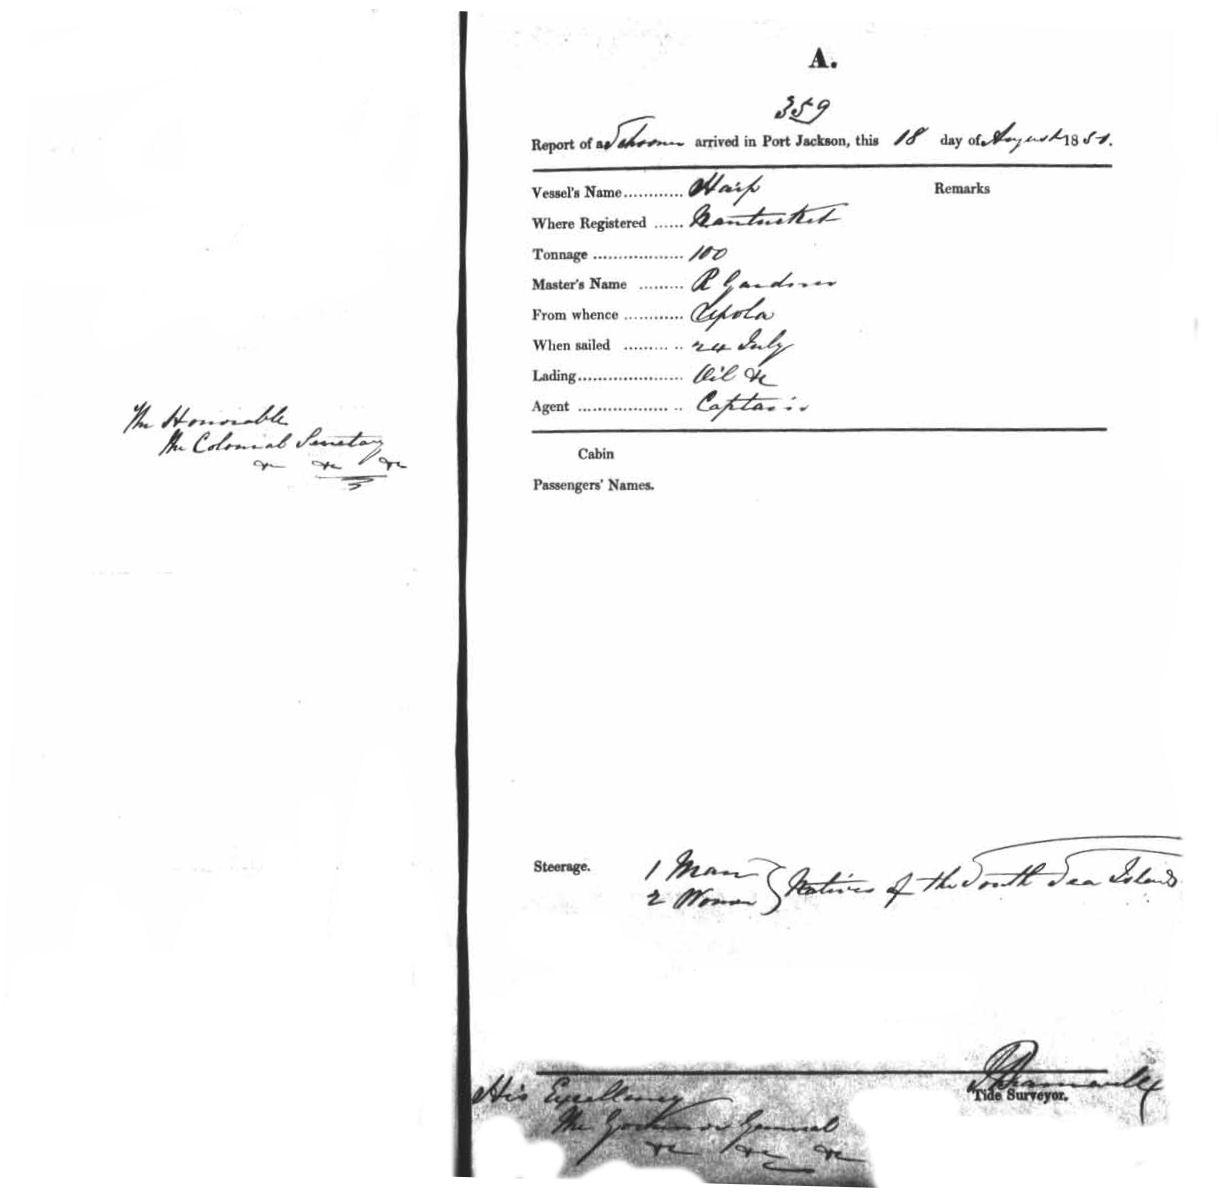 The Honorable
The Colonial Secretary
&c &c &c
A.
359
Report of a Schooner arrived in Port Jackson, this 18 day of August 1851.
Vessel's Name............ Harp Remarks
Where Registered ...... Nantucket
Tonnage .................. 100
Master's Name ......... R Gardner
From whence ............ Upola
When sailed ......... .. 24 July
Lading..................... Oil &c
Agent .................. .. Captain
Cabin
Passengers' Names.
Steerage. 1 Man
2 Women } Natives of the South Sea Islands
Tide Surveyor.
His Excellency
The Governor General
&c &c &c